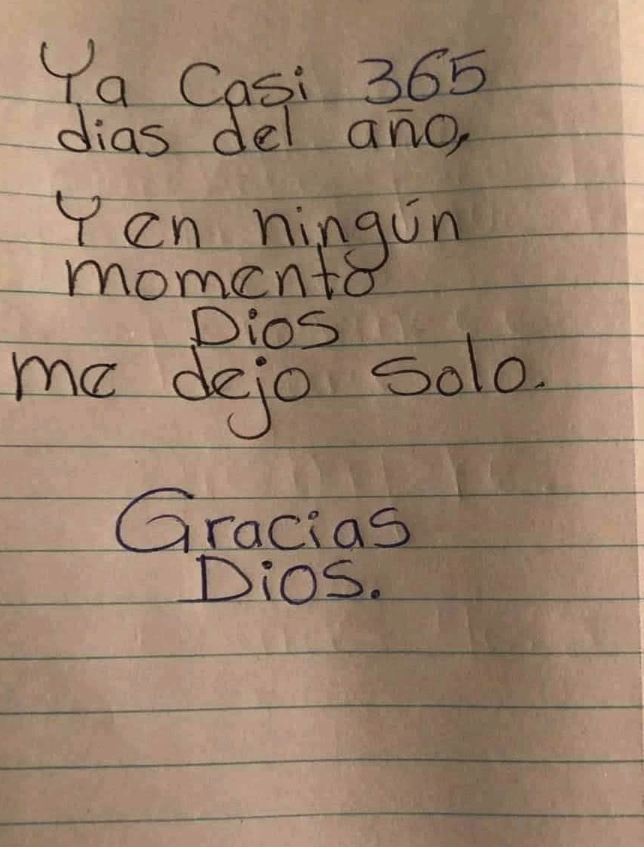 Ya Casi 365
dias del año,
Y en ningún
momento
Dios
me dejo solo.
Gracias
Dios.